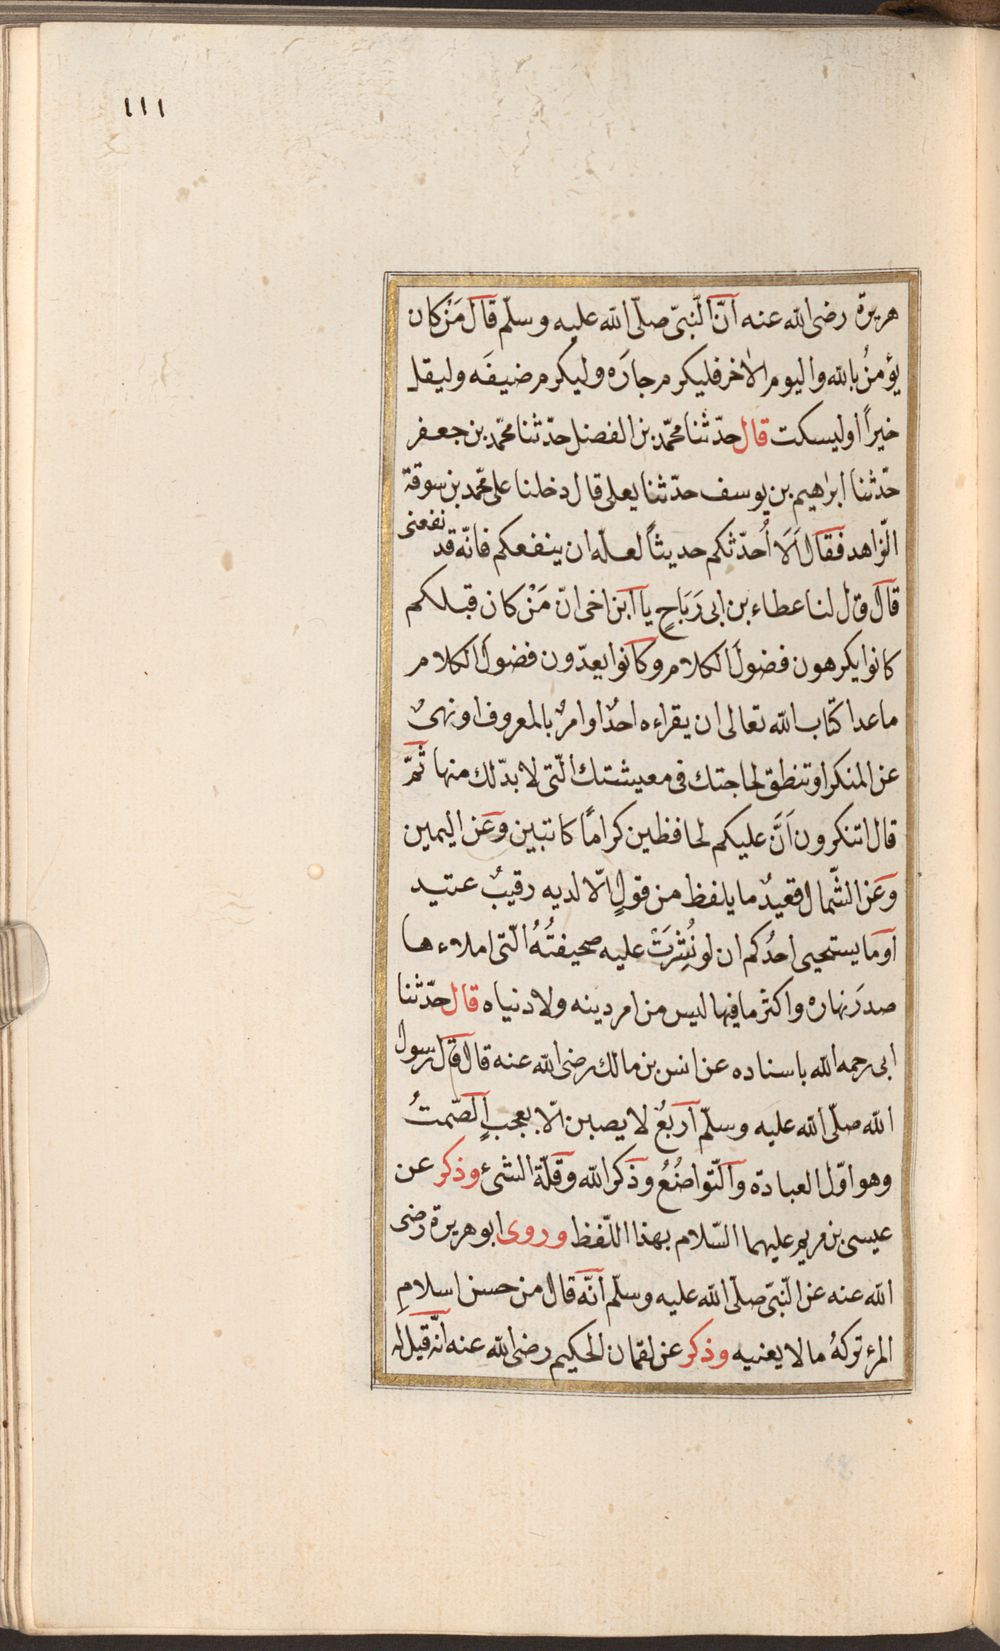 ١١١
هريرة رضى الله عنه أنّ النّبىّ صلّى الله عليه وسلّم قال مَنْ كان
يؤمنُ بالله واليوم الاخر فليكرم جارَه وليكرم ضيفَه وليقل
خيراً او ليسكت قال حدّثنا محمّد بن الفضل حدّثنا محمّد بن جعفر
حدّثنا ابرٰهيم بن يوسف حدّثنا يعلى قال دخلنا على محمّد بن سوقة
الزّاهد فقال اَلَا اُحدّثكم حديثاً لعلّه ان ينفعكم فانّه قد نفعنى
قال قال لنا عطاء بن ابى رَبَاحٍ يا ابن اخى انّ مَنْ كان قبلكم
كانوا يكرهون فضولَ الكلام وكانوا يعدّون فضولَ الكلام
ما عدا كتاب الله تعالى ان يقراءه احدٌ او امرٌ بالمعروف او نهىٌ
عن المنكر او تنطق لحاجتك فى معيشتك الّتى لا بدّ لك منها ثمّ
قال اتنكرون اَنَّ عليكم لحافظين كراماً كاتبين وعن اليمين
وعن الشّمال قعيدٌ ما يلفظ من قولٍ الّا لديه رقيبٌ عتيد
اوما يستحيى احدُكم ان لو نُشِرَتْ عليه صحيفتُهُ الّتى املاءها
صدرَ نهاره واكثر ما فيها ليس من امر دينه ولا دنياه قال حدّثنا
ابى رحمه الله باسناده عن انس بن مالك رضى الله عنه قال قال رسول
الله صلّى الله عليه وسلّم اربعٌ لا يصبن الّا بعجبٍ الصّمتُ
وهو اوّل العبادة والتّواضُعُ وذكر الله وقلّة الشىء وذكر عن
عيسى بن مريم عليهما السّلام بهذا اللّفظ وروى ابو هريرة رضى
الله عنه عن النّبىّ صلّى الله عليه وسلّم انّه قال من حسن اسلامِ
المرء تركهُ ما لا يعنيه وذكر عن لقمان الحكيم رضى الله عنه انّه قيل له